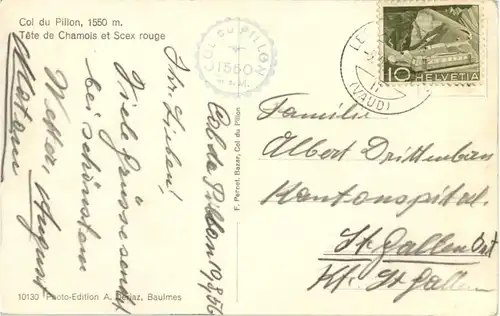 Col du Pillon, 1550 m.
Tête de Chamois et Scex rouge
COL DU PILLON
1550
m s. M.
HELVETIA
10
(VAUD)
Col de Pillon 10.8.56
Ihr Lieben!
Viele Grüsse sendet
bei schönstem
Wetter, August
F. Pernet, Bazar, Col du Pillon
Familie
Albert
Kantonspital
St. Gallen Ost
Kt. St. Gallen
10130 Photo-Edition A. Deriaz, Baulmes